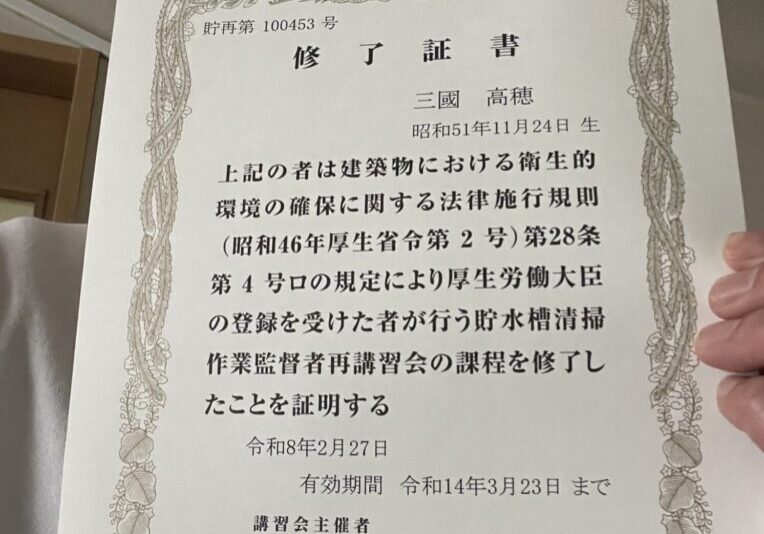 貯再第 100453 号
修了証書
三國　高穂
昭和51年11月24日 生
上記の者は建築物における衛生的
環境の確保に関する法律施行規則
（昭和46年厚生省令第 2 号）第28条
第 4 号ロの規定により厚生労働大臣
の登録を受けた者が行う貯水槽清掃
作業監督者再講習会の課程を修了し
たことを証明する
令和8年2月27日
有効期間　令和14年3月23日 まで
講習会主催者